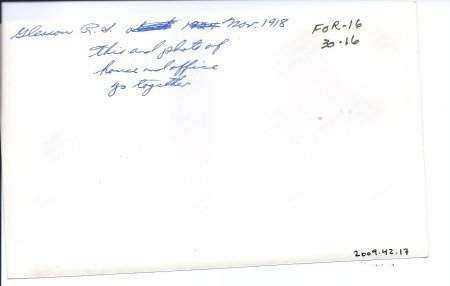 Glesson R.S. about 1924 Nov. 1918
this and photo of
house and office
go together
FOR-16
30-16
2009.42.17